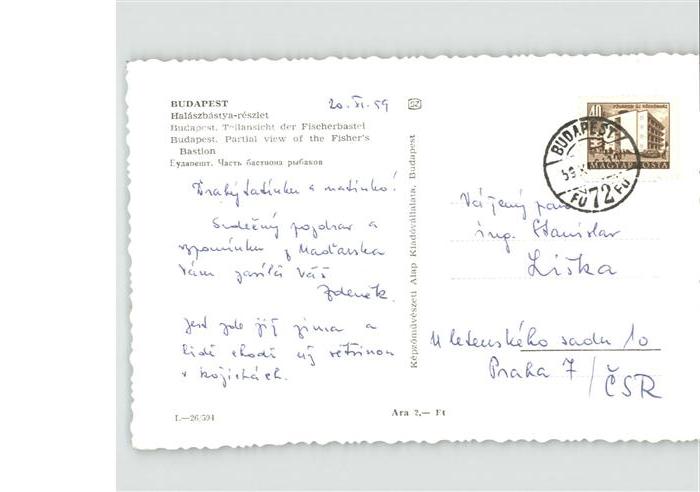 BUDAPEST
20. XI. 59
Halászbástya-részlet
Budapest. Teilansicht der Fischerbastei
Budapest. Partial view of the Fisher's
Bastion
Будапешт. Часть бастиона рыбаков
Drahý tatínku a matinko!
Srdečný pozdrav a
vzpomínku z Maďarska
Vám zasílá Váš
Zdeněk.
Jest zde již zima a
lidé chodí již většinou
v kožichách.
L—26/594
Ara 2,— Ft
Képzőművészeti Alap Kiadóvállalata, Budapest
40
MAGYAR POSTA
BUDAPEST
72
Vážený pan
ing. Stanislav
Liška
U letenského sadu 10
Praha 7 / ČSR